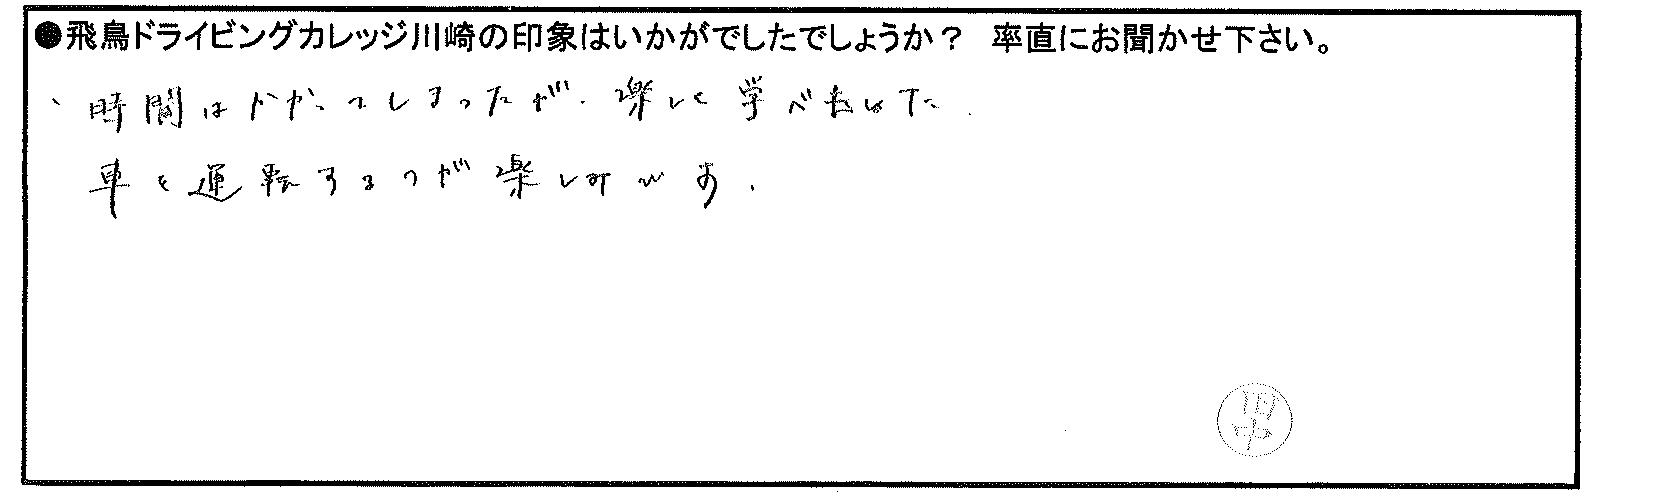 ●飛鳥ドライビングカレッジ川崎の印象はいかがでしたでしょうか？　率直にお聞かせ下さい。
、時間はかかってしまったが、楽しく学べました。
車を運転するのが楽しみです。